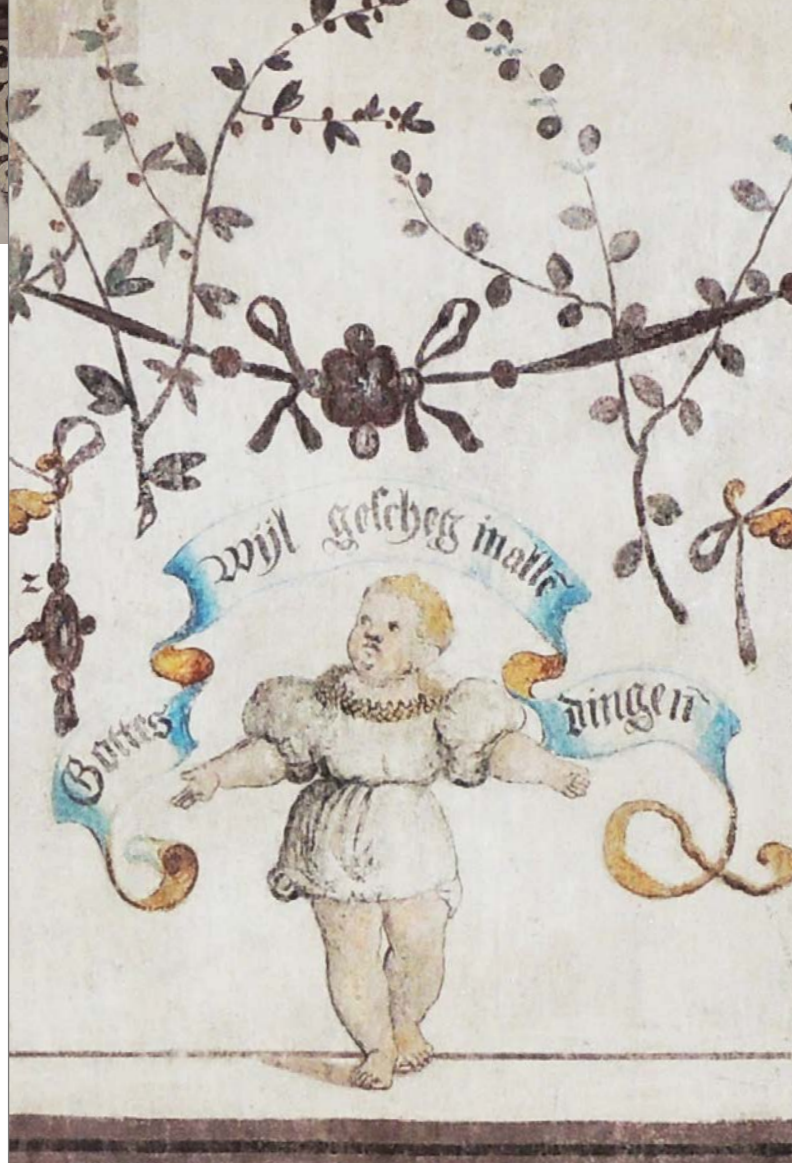 Gottes wijl gescheg in allē dingen
z